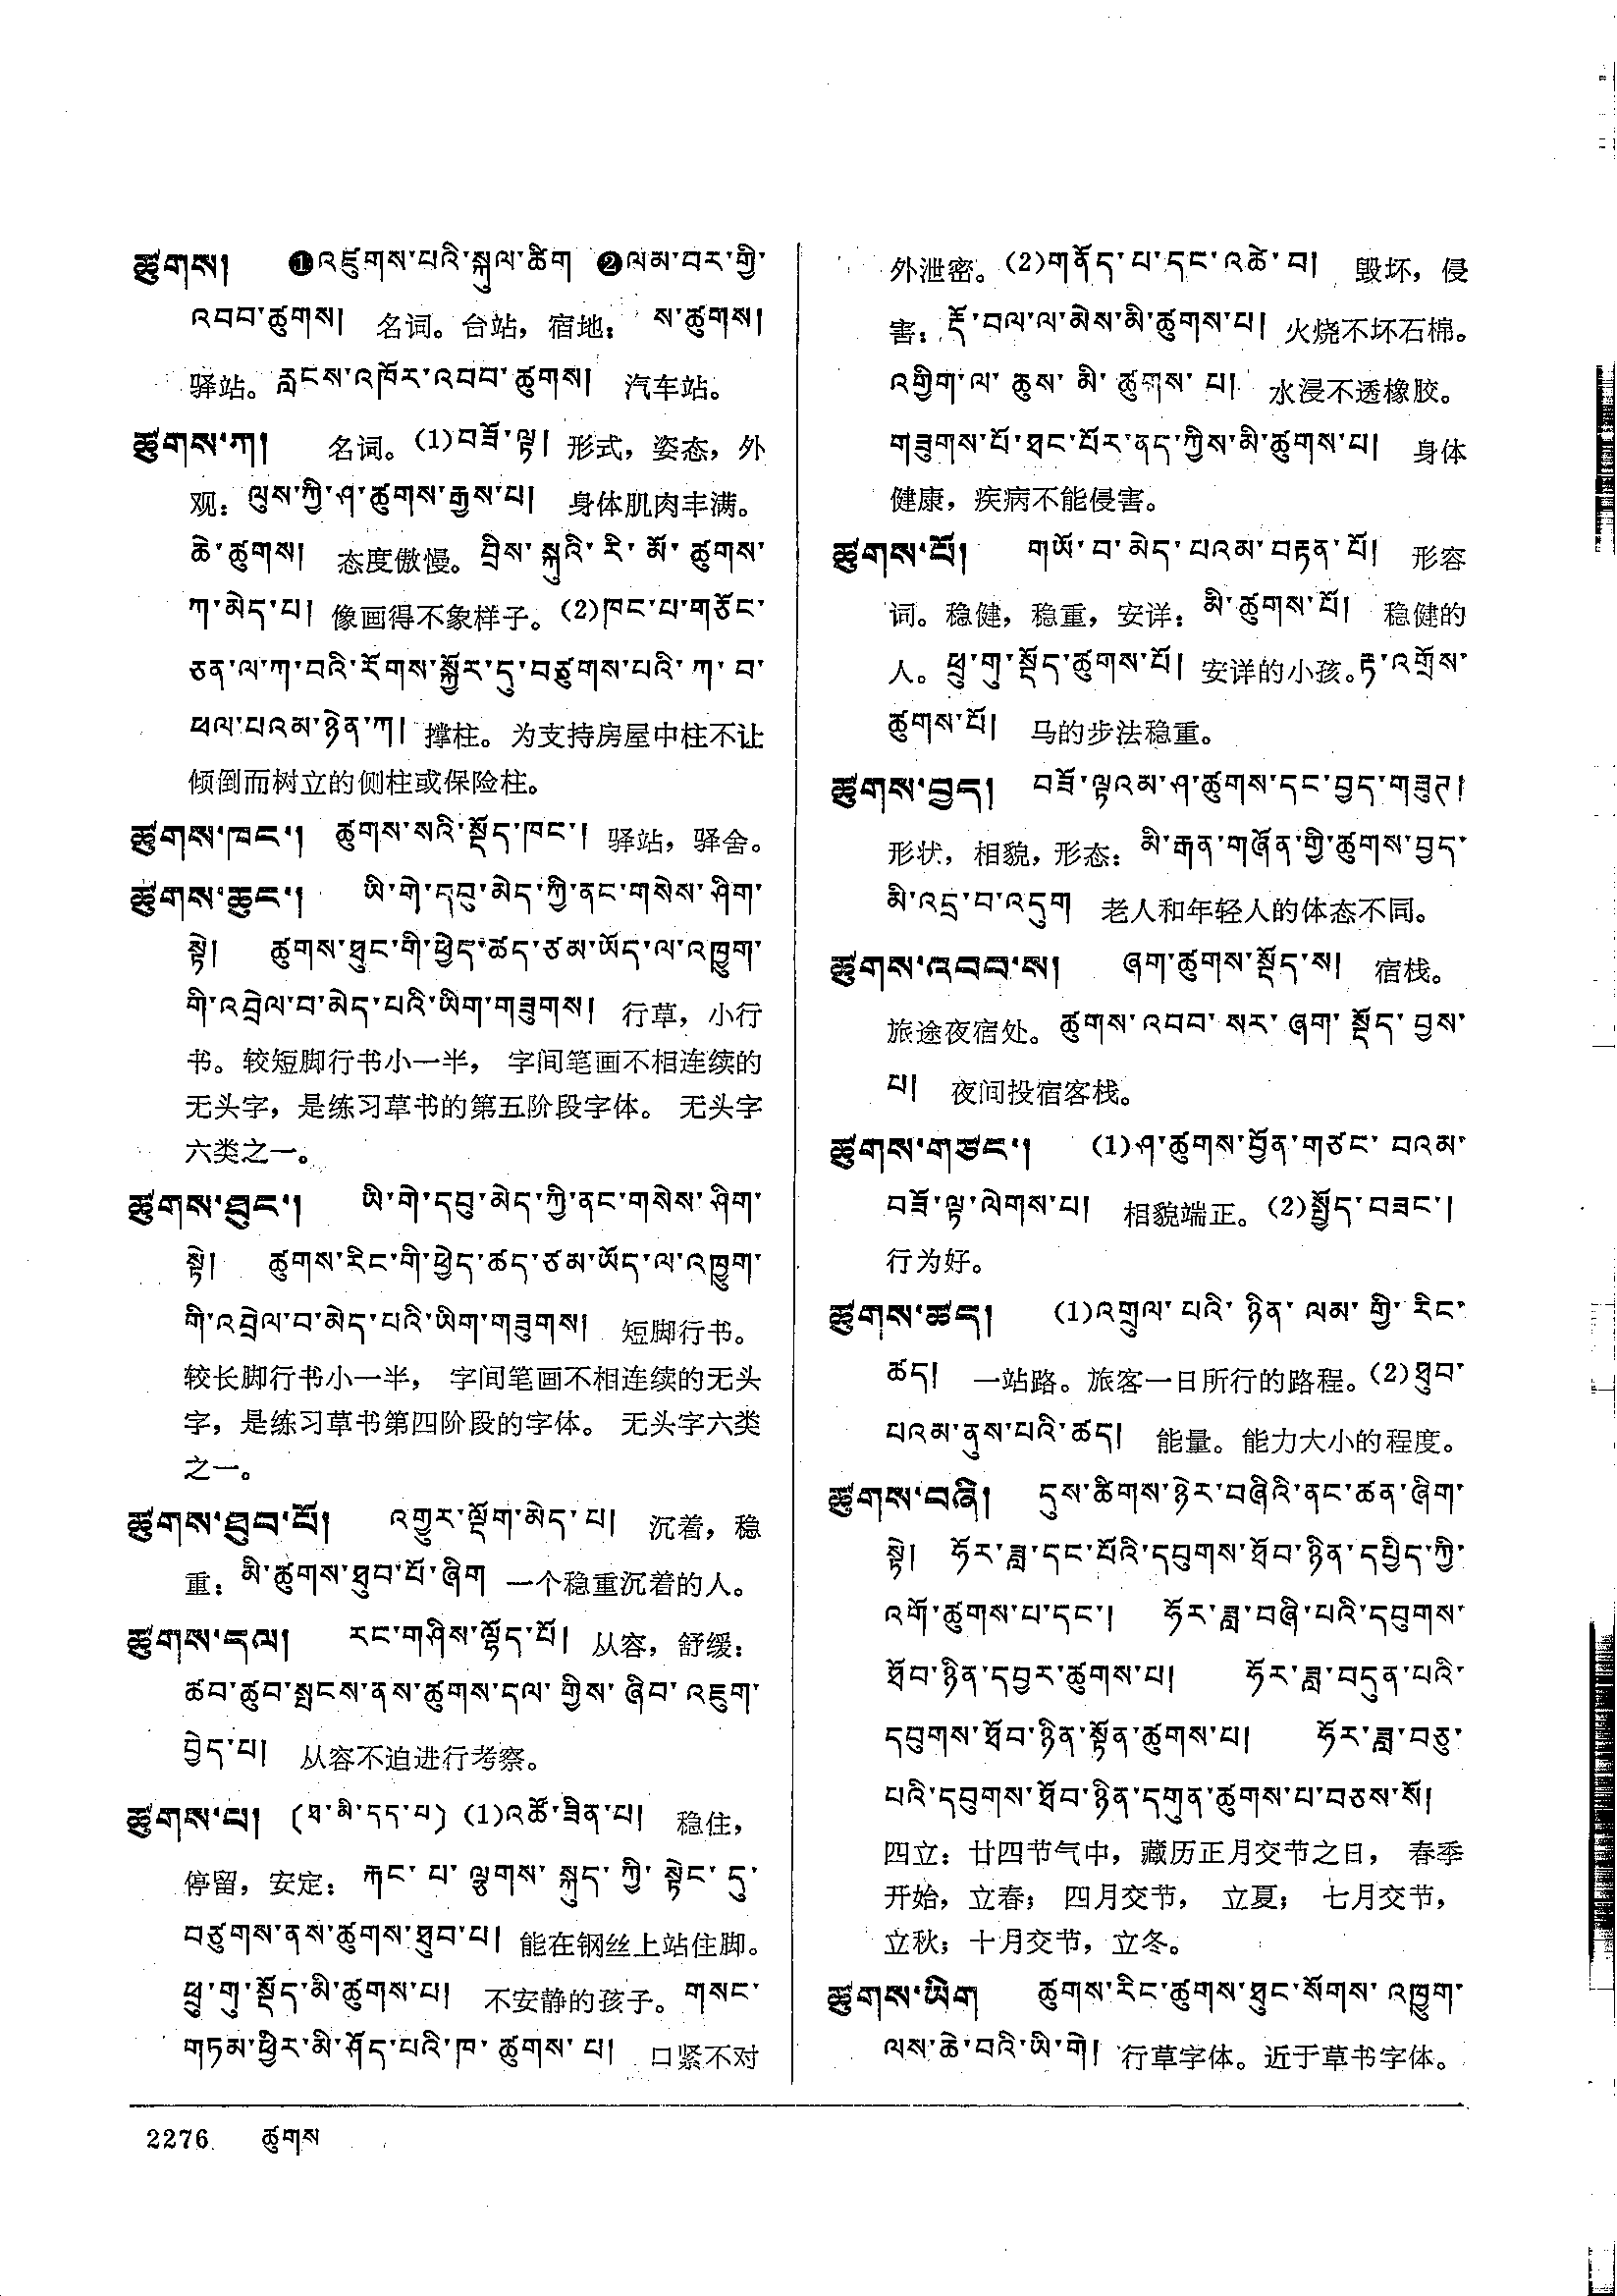 ཚུགས། ❶འཛུགས་པའི་སྐུལ་ཚིག ❷ལམ་བར་གྱི་
འབབ་ཚུགས། 名词。台站，宿地： ས་ཚུགས།
驿站。རླངས་འཁོར་འབབ་ཚུགས། 汽车站。
ཚུགས་ཀ། 名词。(1)བཟོ་ལྟ། 形式，姿态，外
观：ལུས་ཀྱི་ཤ་ཚུགས་རྒྱས་པ། 身体肌肉丰满。
ཆེ་ཚུགས། 态度傲慢。བྲིས་སྐུའི་རི་མོ་ཚུགས་
ཀ་མེད་པ། 像画得不象样子。(2)ཁང་པ་གཅོང་
ཅན་ལ་ཀ་བའི་རོགས་སྐྱོར་དུ་བཙུགས་པའི་ཀ་བ་
ཕལ་པའམ་ཉེན་ཀ། 撑柱。为支持房屋中柱不让
倾倒而树立的侧柱或保险柱。
ཚུགས་ཁང་། ཚུགས་སའི་སྡོད་ཁང་། 驿站，驿舍。
ཚུགས་ཆུང་། ཡི་གེ་དབུ་མེད་ཀྱི་ནང་གསེས་ཤིག་
སྟེ། ཚུགས་ཐུང་གི་ཕྱེད་ཚད་ཙམ་ཡོད་ལ་འཁྱུག་
གི་འབྲེལ་བ་མེད་པའི་ཡིག་གཟུགས། 行草，小行
书。较短脚行书小一半， 字间笔画不相连续的
无头字，是练习草书的第五阶段字体。 无头字
六类之一。
ཚུགས་ཐུང་། ཡི་གེ་དབུ་མེད་ཀྱི་ནང་གསེས་ཤིག་
སྟེ། ཚུགས་རིང་གི་ཕྱེད་ཚད་ཙམ་ཡོད་ལ་འཁྱུག་
གི་འབྲེལ་བ་མེད་པའི་ཡིག་གཟུགས། 短脚行书。
较长脚行书小一半， 字间笔画不相连续的无头
字，是练习草书第四阶段的字体。 无头字六类
之一。
ཚུགས་ཐུབ་པོ། འགྱུར་ལྡོག་མེད་པ། 沉着，稳
重：མི་ཚུགས་ཐུབ་པོ་ཞིག 一个稳重沉着的人。
ཚུགས་དལ། རང་གཤིས་ལྷོད་པོ། 从容，舒缓：
ཚབ་ཚུབ་སྤངས་ནས་ཚུགས་དལ་གྱིས་ཞིབ་འཇུག་
བྱེད་པ། 从容不迫进行考察。
ཚུགས་པ། (ཐ་མི་དད་པ) (1)འཚོ་ཟིན་པ། 稳住，
停留，安定：རྐང་པ་ལྕགས་སྐུད་ཀྱི་སྟེང་དུ་
བཙུགས་ནས་ཚུགས་ཐུབ་པ། 能在钢丝上站住脚。
ཕྲུ་གུ་སྡོད་མི་ཚུགས་པ། 不安静的孩子。གསང་
གཏམ་ཕྱིར་མི་ཤོད་པའི་ཁ་ཚུགས་པ། 口紧不对
外泄密。(2)གནོད་པ་དང་འཚེ་བ། 毁坏，侵
害：རྡོ་བལ་ལ་མེས་མི་ཚུགས་པ། 火烧不坏石棉。
འགྱིག་ལ་ཆུས་མི་ཚུགས་པ། 水浸不透橡胶。
གཟུགས་པོ་ཐང་པོར་ནད་ཀྱིས་མི་ཚུགས་པ། 身体
健康，疾病不能侵害。
ཚུགས་པོ། གཡོ་བ་མེད་པའམ་བརྟན་པོ། 形容
词。稳健，稳重，安详：མི་ཚུགས་པོ། 稳健的
人。ཕྲུ་གུ་སྡོད་ཚུགས་པོ། 安详的小孩。རྟ་འགྲོས་
ཚུགས་པོ། 马的步法稳重。
ཚུགས་བྱད། བཟོ་ལྟའམ་ཤ་ཚུགས་དང་བྱད་གཟུཊ།
形状，相貌，形态：མི་རྒན་གཞོན་གྱི་ཚུགས་བྱད་
མི་འདྲ་བ་འདུག 老人和年轻人的体态不同。
ཚུགས་འབབ་ས། ཞག་ཚུགས་སྡོད་ས། 宿栈。
旅途夜宿处。ཚུགས་འབབ་སར་ཞག་སྡོད་བྱས་
པ། 夜间投宿客栈。
ཚུགས་གཙང་། (1)ཤ་ཚུགས་བྱོན་གཙང་བའམ་
བཟོ་ལྟ་ལེགས་པ། 相貌端正。(2)སྤྱོད་བཟང་།
行为好。
ཚུགས་ཚད། (1)འགྲུལ་པའི་ཉིན་ལམ་གྱི་རིང་
ཚད། 一站路。旅客一日所行的路程。(2)ཐུབ་
པའམ་ནུས་པའི་ཚད། 能量。能力大小的程度。
ཚུགས་བཞི། དུས་ཚིགས་ཉེར་བཞིའི་ནང་ཚན་ཞིག་
སྟེ། ཧོར་ཟླ་དང་པོའི་དབུགས་ཐོབ་ཉིན་དཔྱིད་ཀྱི་
འགོ་ཚུགས་པ་དང་། ཧོར་ཟླ་བཞི་པའི་དབུགས་
ཐོབ་ཉིན་དབྱར་ཚུགས་པ། ཧོར་ཟླ་བདུན་པའི་
དབུགས་ཐོབ་ཉིན་སྟོན་ཚུགས་པ། ཧོར་ཟླ་བཅུ་
པའི་དབུགས་ཐོབ་ཉིན་དགུན་ཚུགས་པ་བཅས་སོ།
四立：廿四节气中，藏历正月交节之日， 春季
开始，立春； 四月交节， 立夏； 七月交节，
立秋；十月交节，立冬。
ཚུགས་ཡིག ཚུགས་རིང་ཚུགས་ཐུང་སོགས་འཁྱུག་
ལས་ཆེ་བའི་ཡི་གེ། 行草字体。近于草书字体。
2276 ཚུགས